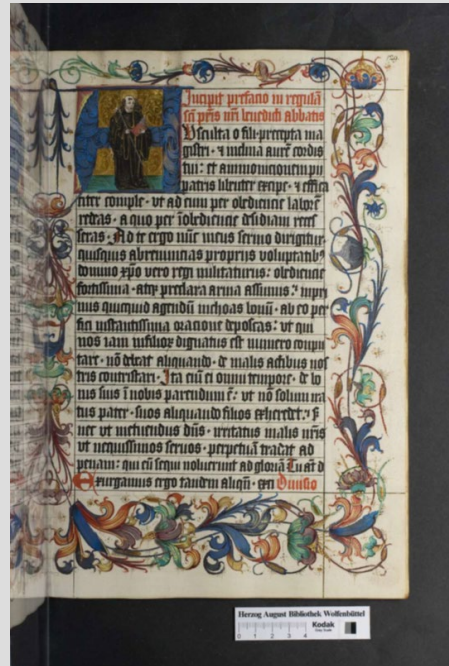 Incipit prefatio in regulā
scī pr̄is nr̄i benedicti abbatis
Usculta o fili precepta ma
gistri · ⁊ inclina aurē cordis
tui : et ammonicionem pii
patris libenter excipe · ⁊ effica
citer comple · vt ad eum per obediencie laborē
redeas · a quo per īobediencie desidiam reces
seras · Ad te ergo nūc meus sermo dirigitur
quisquis abrenuncias proprijs voluptatibꝰ
domino xp̄o vero regi militaturus : obediencie
fortissima · atqꝫ preclara arma assumis : inpri
mis quicquid agendū inchoas bonū · ab eo per
fici instantissima oracione deposcas : vt qui
nos iam in filioꝝ dignatus est numero compu
tare · nō debeat aliquando · de malis actibus nos
tris contristari · Ita eni ei omni tempore · de bo
nis suis ī nobis parendum ē : vt nō solum ira
tus pater · suos aliquando filios exheredet : s̄
nec vt metuendus dn̄s · irritatus malis nr̄is
vt nequissimos seruos · perpetuā tradat ad
penam : qui eū sequi noluerint ad gloriā
Exurgamus ergo tandem aliqn̄ · Diuisio
Herzog August Bibliothek Wolfenbüttel
Kodak
0 1 2 3 4